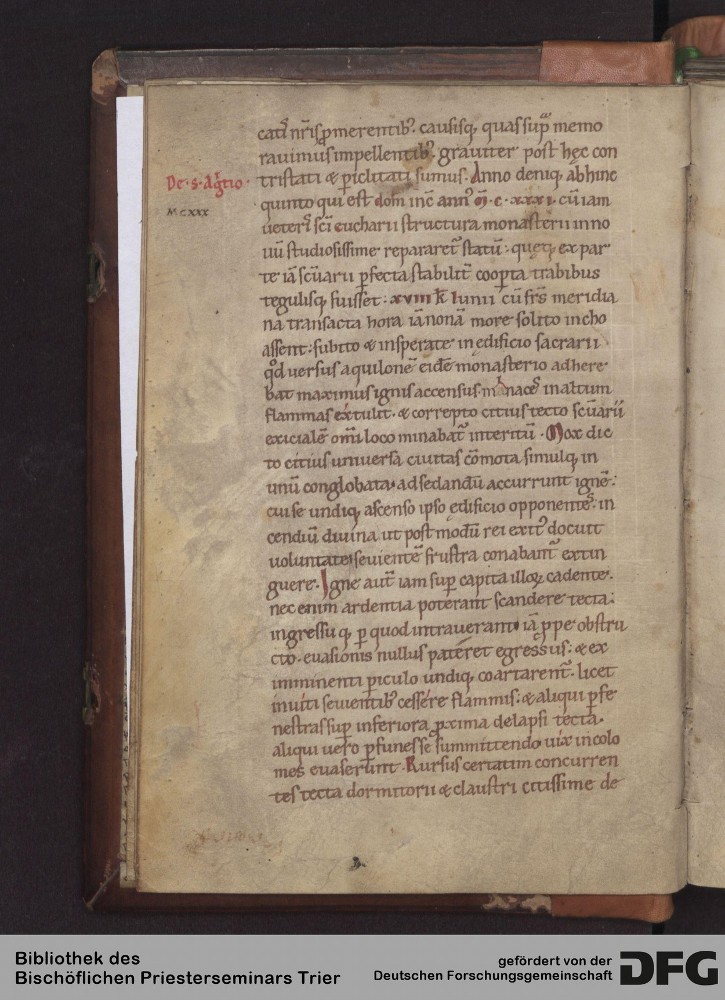 catis nr̄is ꝓmerentibꝰ. causisq; quas sup̱ memo
rauimus impellentibꝰ. grauiter post hęc con
De · s · Ag̅tio · tristati & p̱iclitati sumus. Anno deniq; abhinc
M·cxxx quinto qui est dom̄ inc̄ ann᷒ ·M̄·c·xxxi· cū iam
ueteris sc̄i eucharii structura monasterii in no
uū studiosissime repararet᷑ statū: quęq; ex par
te iā sc̄uarii p̱fecta stabilit᷑ coop̱ta trabibus
tegulisq; fuisset: xviii k̄l iunii cū fr̄s meridia
na transacta hora iā nonā more solito incho
assent: subito & insperate in ędificio sacrarii
qd̄ uersus aquilonē eidē monasterio adhere
bat maximus ignis accensus minaces in altum
flammas extulit. & correpto citius tecto sc̄uarii
exicialē om̄i loco minabat᷑ interitū. Mox dic
to citius uniuersa ciuitas cōmota simulq; in
unū conglobata. ad sedandū accurrunt ignē:
cui se undiq; ascenso ipso ędificio opponentes. in
cendiū diuina ut post modū rei exitꝰ docuit
uoluntate seuientē frustra conabant᷑ extin
guere. Igne aut̄ iam sup̱ capita illoꝝ cadente.
nec enim ardentia poterant scandere tecta:
ingressu q; p̱ quod intrauerant iā ꝓpe obstru
cto. euasionis nullus pateret egressus: & ex
imminenti p̱iculo undiq; coartarent᷑. licet
inuiti seuientibꝰ cessere flammis: & aliqui p̱ fe
nestras sup̱ inferiora ꝓxima delapsi tecta.
aliqui uero p̱ funes se summittendo uix incolo
mes euaserunt. Rursus certatim concurren
tes tecta dormitorii & claustri citissime de
Bibliothek des
Bischöflichen Priesterseminars Trier
gefördert von der
Deutschen Forschungsgemeinschaft
DFG